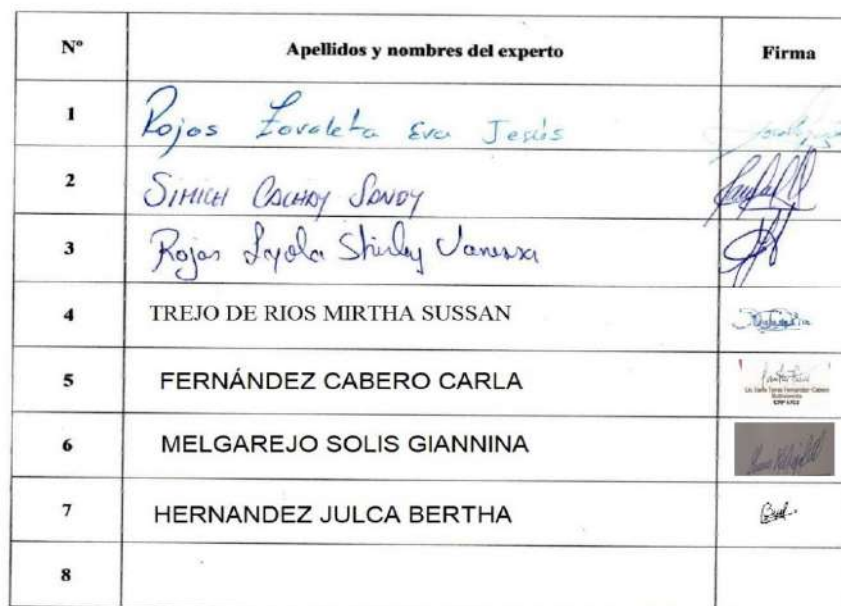 Nº Apellidos y nombres del experto Firma
1 Rojas Zavaleta Eva Jesús
2 SIMICH CACHAY SANDY
3 Rojas Loyola Shirley Vanessa
4 TREJO DE RIOS MIRTHA SUSSAN
5 FERNÁNDEZ CABERO CARLA
6 MELGAREJO SOLIS GIANNINA
7 HERNANDEZ JULCA BERTHA
8